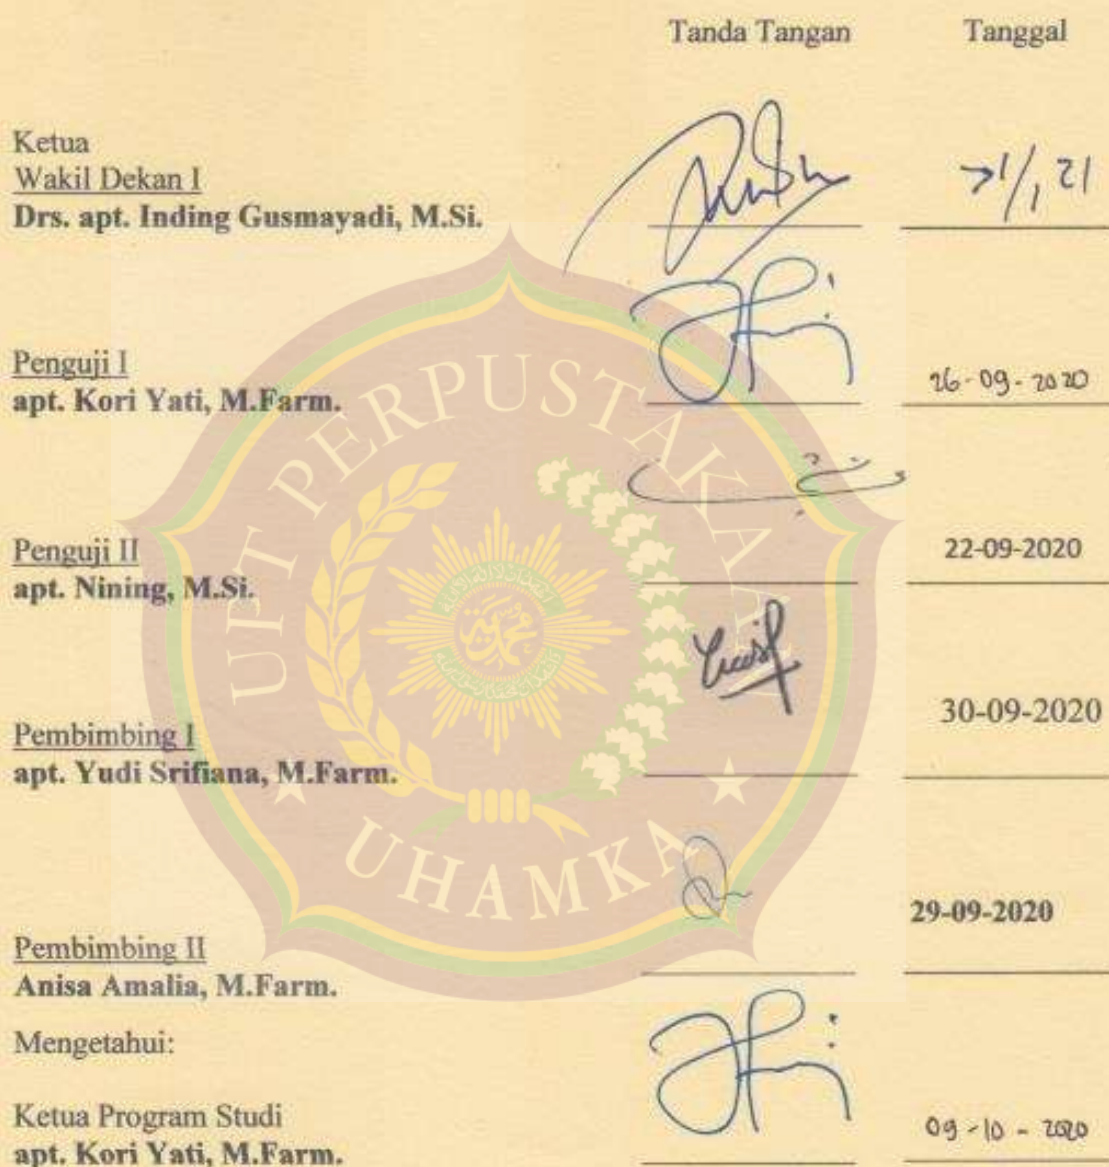 Tanda Tangan Tanggal
Ketua
Wakil Dekan I
Drs. apt. Inding Gusmayadi, M.Si.
Penguji I
apt. Kori Yati, M.Farm. 26-09-2020
Penguji II 22-09-2020
apt. Nining, M.Si.
Pembimbing I 30-09-2020
apt. Yudi Srifiana, M.Farm.
Pembimbing II 29-09-2020
Anisa Amalia, M.Farm.
Mengetahui:
Ketua Program Studi
apt. Kori Yati, M.Farm. 09-10-2020
UPT PERPUSTAKAAN
UHAMKA